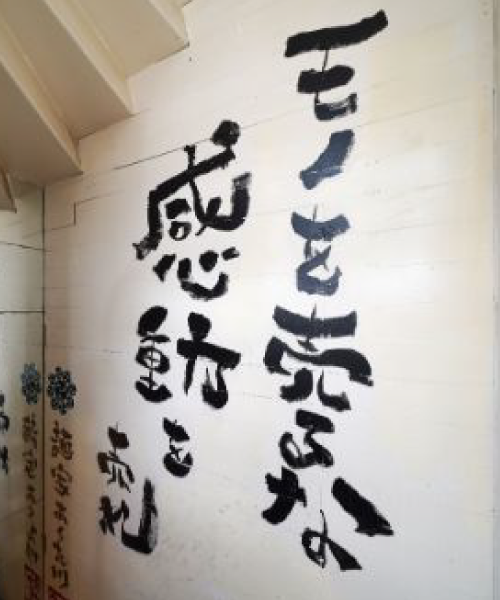 モノを売るな
感動を売れ